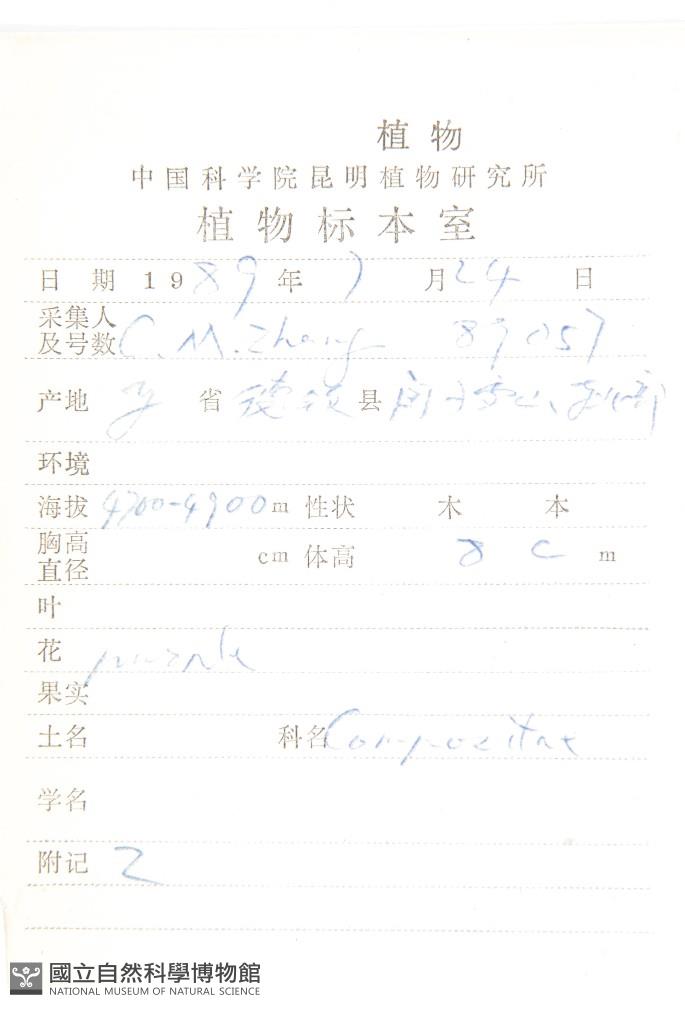 植物
中国科学院昆明植物研究所
植物标本室
日 期 1989年 7 月24 日
采集人
及号数 C. M. Zhang 89057
产地 省 德钦 县
环境
海拔 4700-4900m 性状 木 本
胸高
直径 cm 体高 8 c m
叶
花 purple
果实
土名 科名 Compositae
学名
附记 2
國立自然科學博物館
NATIONAL MUSEUM OF NATURAL SCIENCE